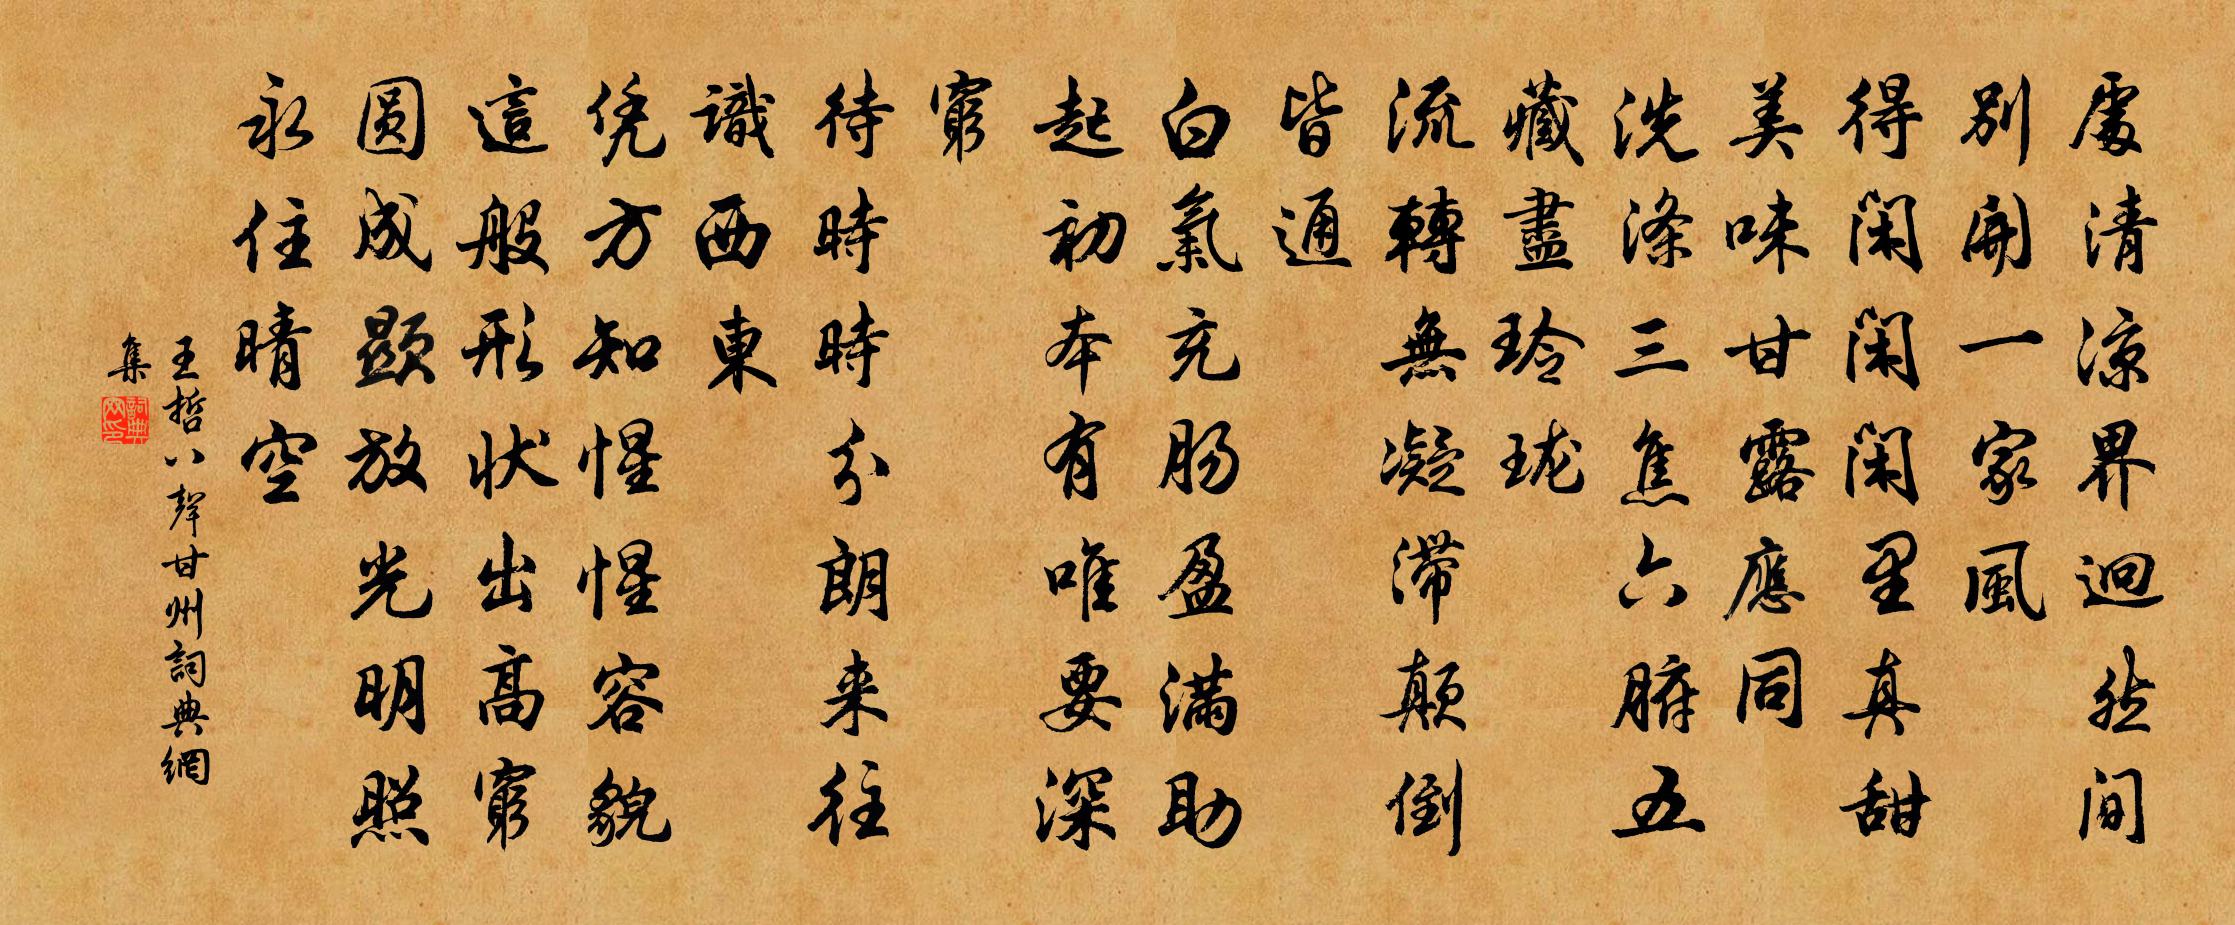 處清涼界迥然間
別開一家風
得闲闲闲里真甜
美味甘露應同
洗滌三焦六腑五
藏盡玲珑
流轉無凝滯顛倒
皆通
白氣充肠盈滿助
起初本有唯要深
窮
待時時分朗来往
識西東
凭方知惺惺容貌
這般形状出高窮
圆成顯放光明照
永住晴空
王哲八聲甘州詞典網
集
詞典
网印